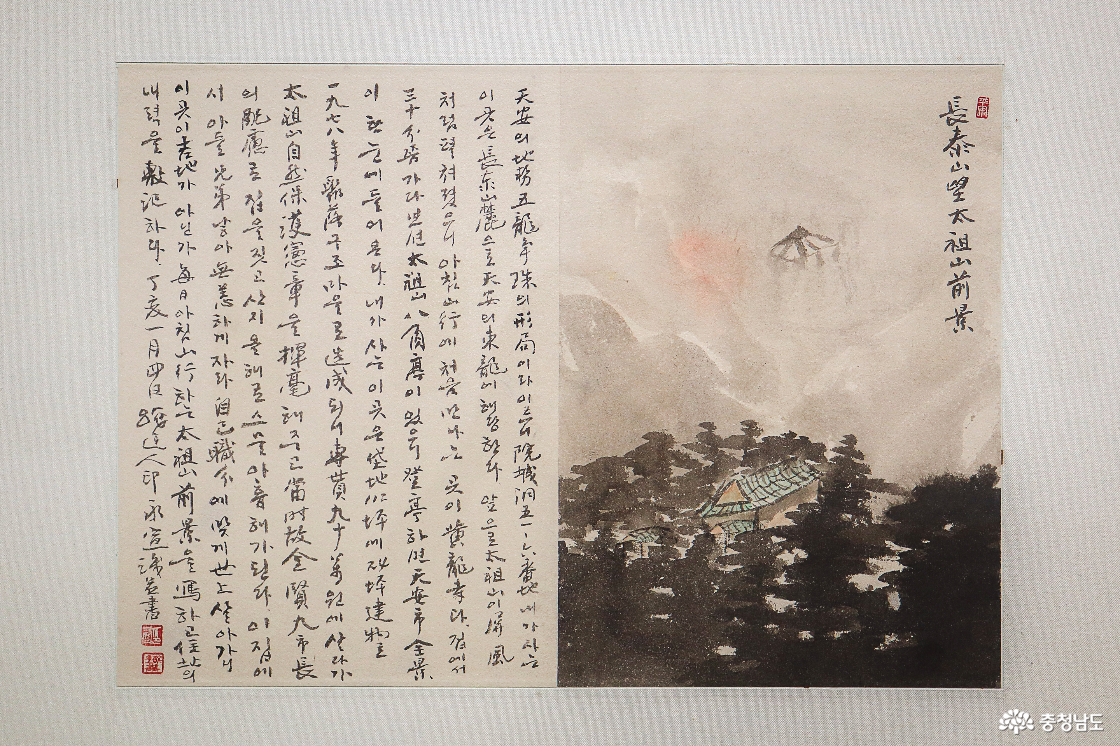 長泰山望太祖山前景
天安의 地 五龍爭珠의 形局이라 院城洞 五一 六番地 내가 사는
이곳은 長泰山麓으로 天安의 東龍에 해당한다 앞으로 太祖山이 屛風
처럼 펼쳐졌으며 아침山行에 처음 만나는 곳이 黃龍寺다. 절에서
三十分쯤 가다보면 太祖山 八角亭이 있으니 登亭하면 天安市 全景
이 한눈에 들어온다. 내가 사는 이곳은 垈地 坪에 坪 建物로
一九七八年 聚落구조마을로 造成되어 專貰 九十萬원에 살다가
太祖山自然保護憲章을 揮毫해주고 當時 故 金賢九市長
의 配慮로 집을 짓고 산지 올해로 스물아홉해가 된다 이 집에
서 아들 兄弟 낳아 無恙하게 자라 自己職分에 맞게 世上 살아가니
이곳이 吉地가 아닌가 每日 아침山行하는 太祖山前景을 寫하고 住處의
내력을 敷記하다. 丁亥一月四日 人 印永宣 識并書
충청남도